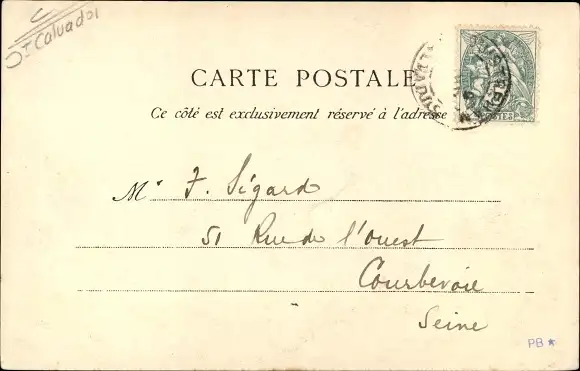 Calvados
CARTE POSTALE
Ce côté est exclusivement réservé à l'adresse
M F. Ségard
51 Rue de l'ouest
Courbevoie
Seine
PB *